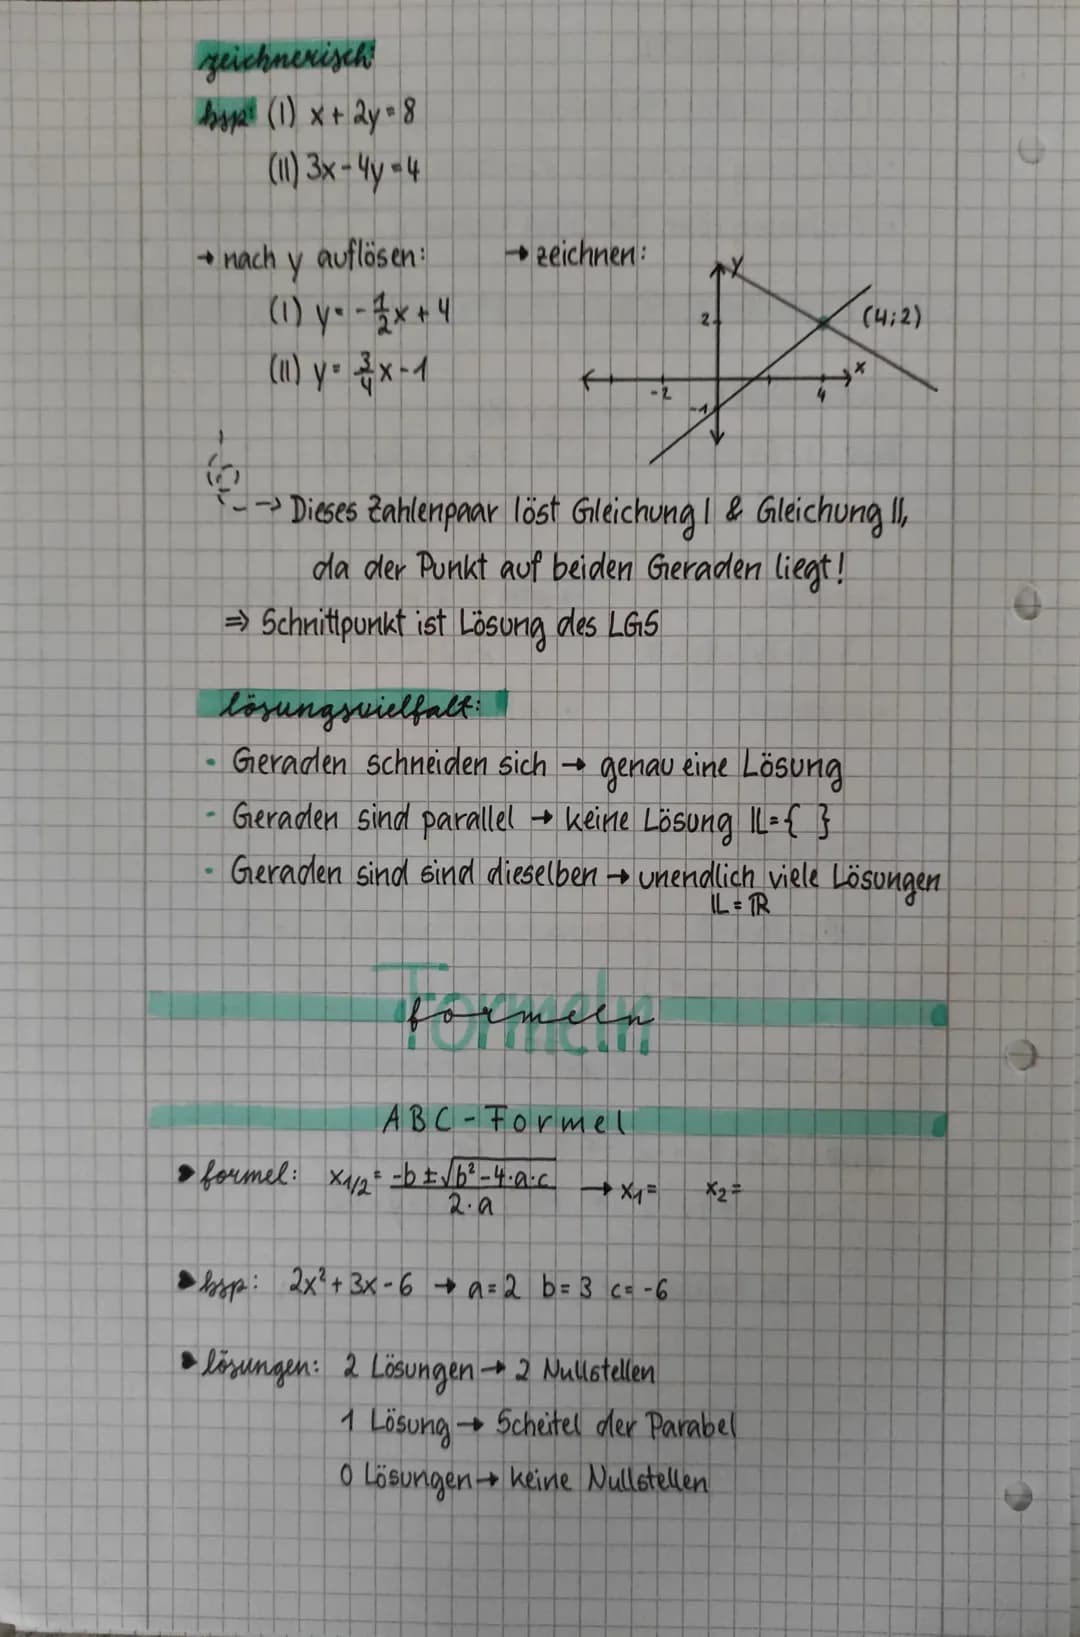 zeichnerisch:
bsp: (I) x + 2y = 8
(II) 3x - 4y = 4
→ nach y auflösen:
(I) y = -1/2 x + 4
(II) y = 3/4 x - 1
→ zeichnen:
y
2
(4;2)
x
-2
4
-1
→ Dieses Zahlenpaar löst Gleichung I & Gleichung II,
da der Punkt auf beiden Geraden liegt!
⇒ Schnittpunkt ist Lösung des LGS
lösungsvielfalt:
• Geraden schneiden sich → genau eine Lösung
• Geraden sind parallel → keine Lösung 𝕃 = { }
• Geraden sind sind dieselben → unendlich viele Lösungen
𝕃 = ℝ
Formeln
formeln
ABC-Formel
formel: x₁/₂ = (-b ± √(b² - 4·a·c)) / (2·a) → x₁ = x₂ =
bsp: 2x² + 3x - 6 → a = 2 b = 3 c = -6
lösungen: 2 Lösungen → 2 Nullstellen
1 Lösung → Scheitel der Parabel
0 Lösungen → keine Nullstellen